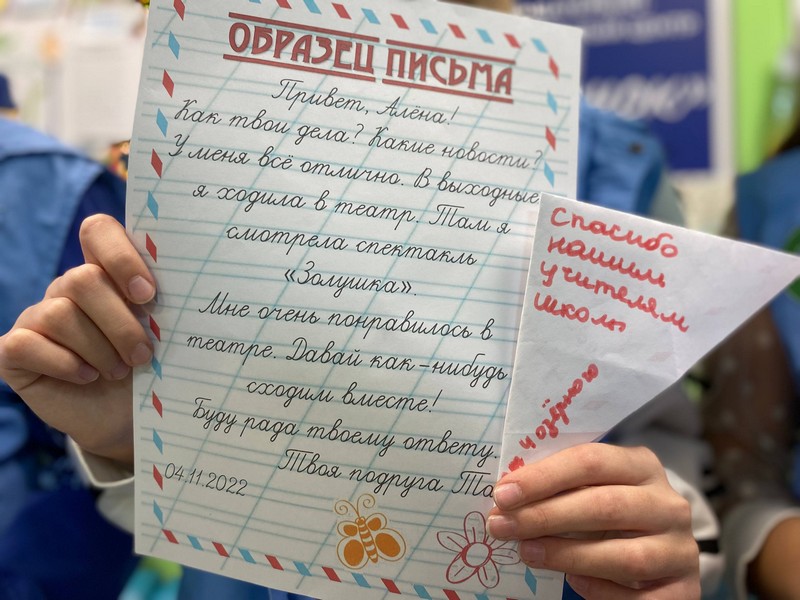 ОБРАЗЕЦ ПИСЬМА
Привет, Алёна!
Как твои дела? Какие новости?
У меня всё отлично. В выходные
я ходила в театр. Там я
смотрела спектакль
«Золушка».
Мне очень понравилось в
театре. Давай как-нибудь
сходим вместе!
Буду рада твоему ответу.
Твоя подруга Та
04.11.2022
Спасибо
нашим
учителям
школы